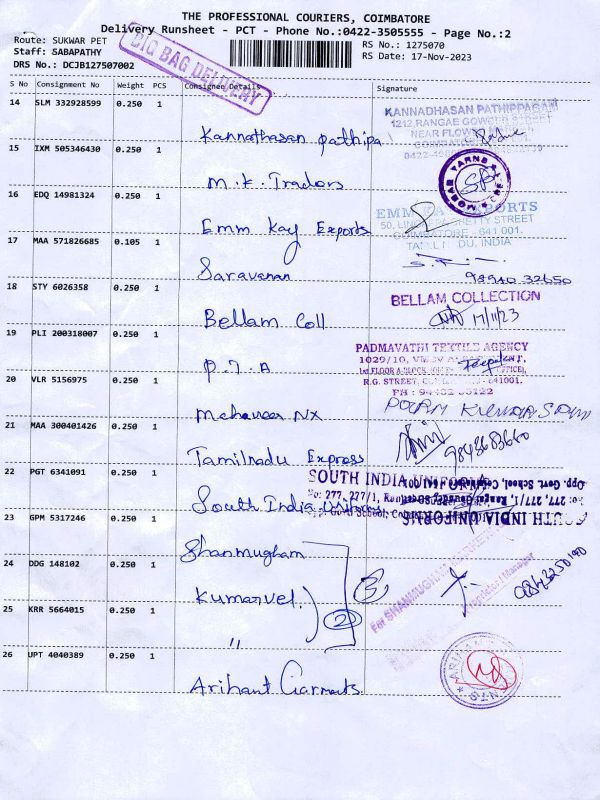 THE PROFESSIONAL COURIERS, COIMBATORE
Delivery Runsheet - PCT - Phone No.:0422-3505555 - Page No.:2
Route: SUKWAR PET
Staff: SABAPATHY
DRS No.: DCJB127507002
RS No.: 1275070
RS Date: 17-Nov-2023
BIG BAG DELIVERY
S No Consignment No Weight PCS Consignee Details Signature
14 SLM 332928599 0.250 1
Kannathasan pathipa
KANNADHASAN PATHIPPAGAM
1212, RANGAE GOWDER STREET
15 IXM 505346430 0.250 1
M.K. Traders
YARNS
16 EDQ 14981324 0.250 1
Emm Kay Exports
EMM KAY EXPORTS
COIMBATORE - 641 001.
TAMIL NADU, INDIA
17 MAA 571826685 0.105 1
Saravanan
98940 32650
18 STY 6026358 0.250 1
Bellam Coll
BELLAM COLLECTION
17/11/23
19 PLI 200318007 0.250 1
P.T.A
PADMAVATHI TEXTILE AGENCY
R.G. STREET, - 641001.
20 VLR 5156975 0.250 1
Mahaveer NX
21 MAA 300401426 0.250 1
Tamilnadu Express
9843683660
22 PGT 6341091 0.250 1
South India Uniforms
SOUTH INDIA UNIFORMS
No: 277, 277/1, Rangai Gowder Street
Opp. Govt. School, Coimbatore
SOUTH INDIA UNIFORMS
23 GPM 5317246 0.250 1
Shanmugham
24 DDG 148102 0.250 1
Kumarvel
2
For SHANMUGHAM
25 KRR 5664015 0.250 1
"
26 UPT 4040389 0.250 1
Arihant Garments
ARIHANT